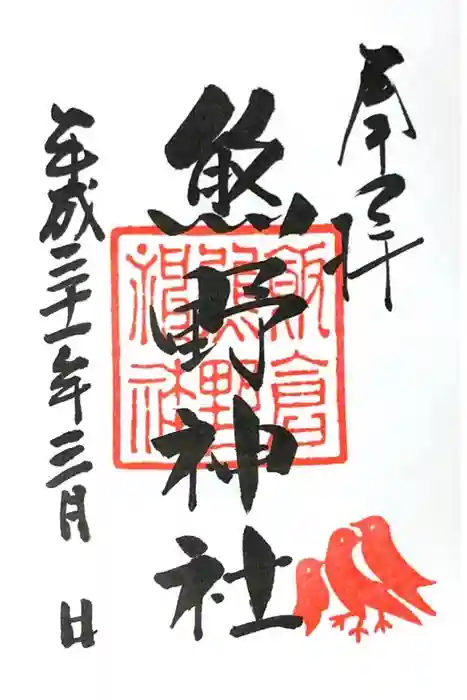 奉拝
熊野神社
平成三十一年三月 日
飯倉
熊野
神社